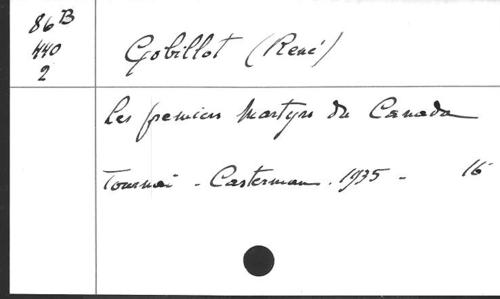 86B
440
2
Gobillot (René)
Les premiers Martyrs du Canada
Tournai - Casterman. 1935 - 16